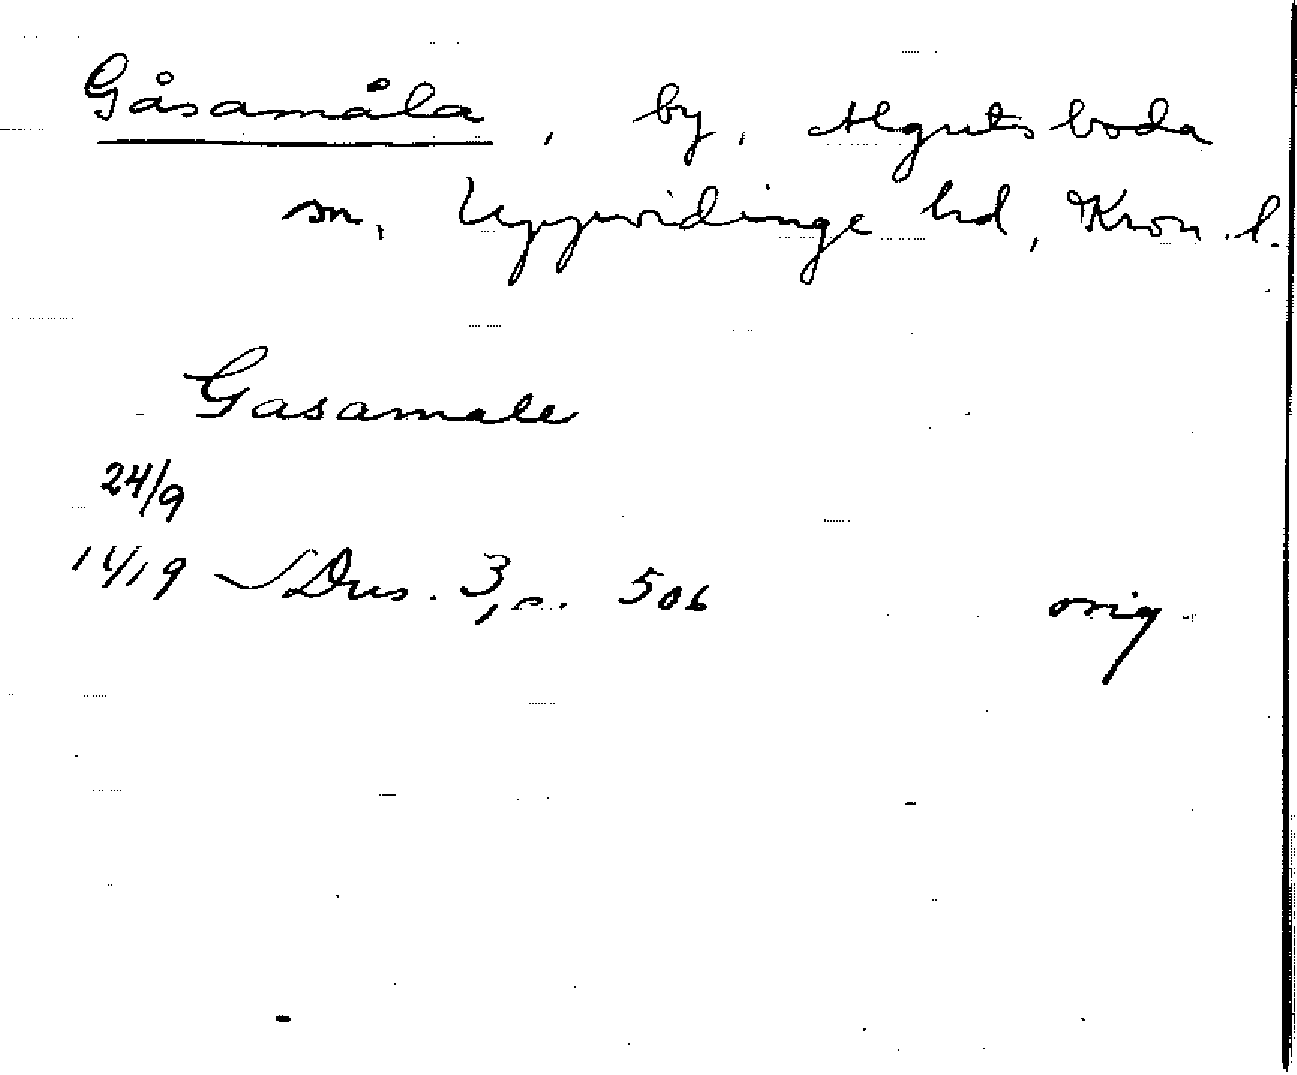 Gåsamåla, by, Algutsboda
sn, Uppvidinge hd, Kron. l.
Gasamale
24/9
1419 SDns. 3, s. 506 orig